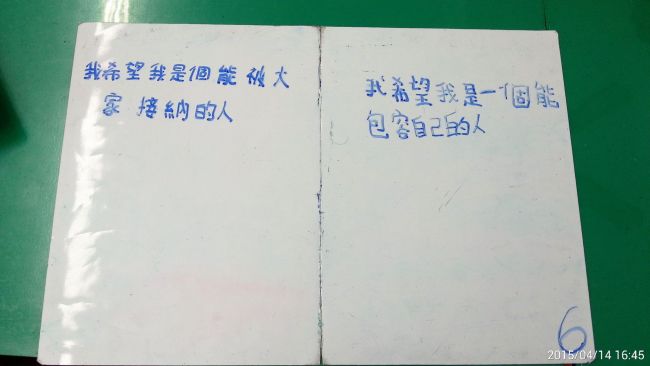 我希望我是個能被大
家接納的人
我希望我是一個能
包容自己的人
6
2015/04/14 16:45